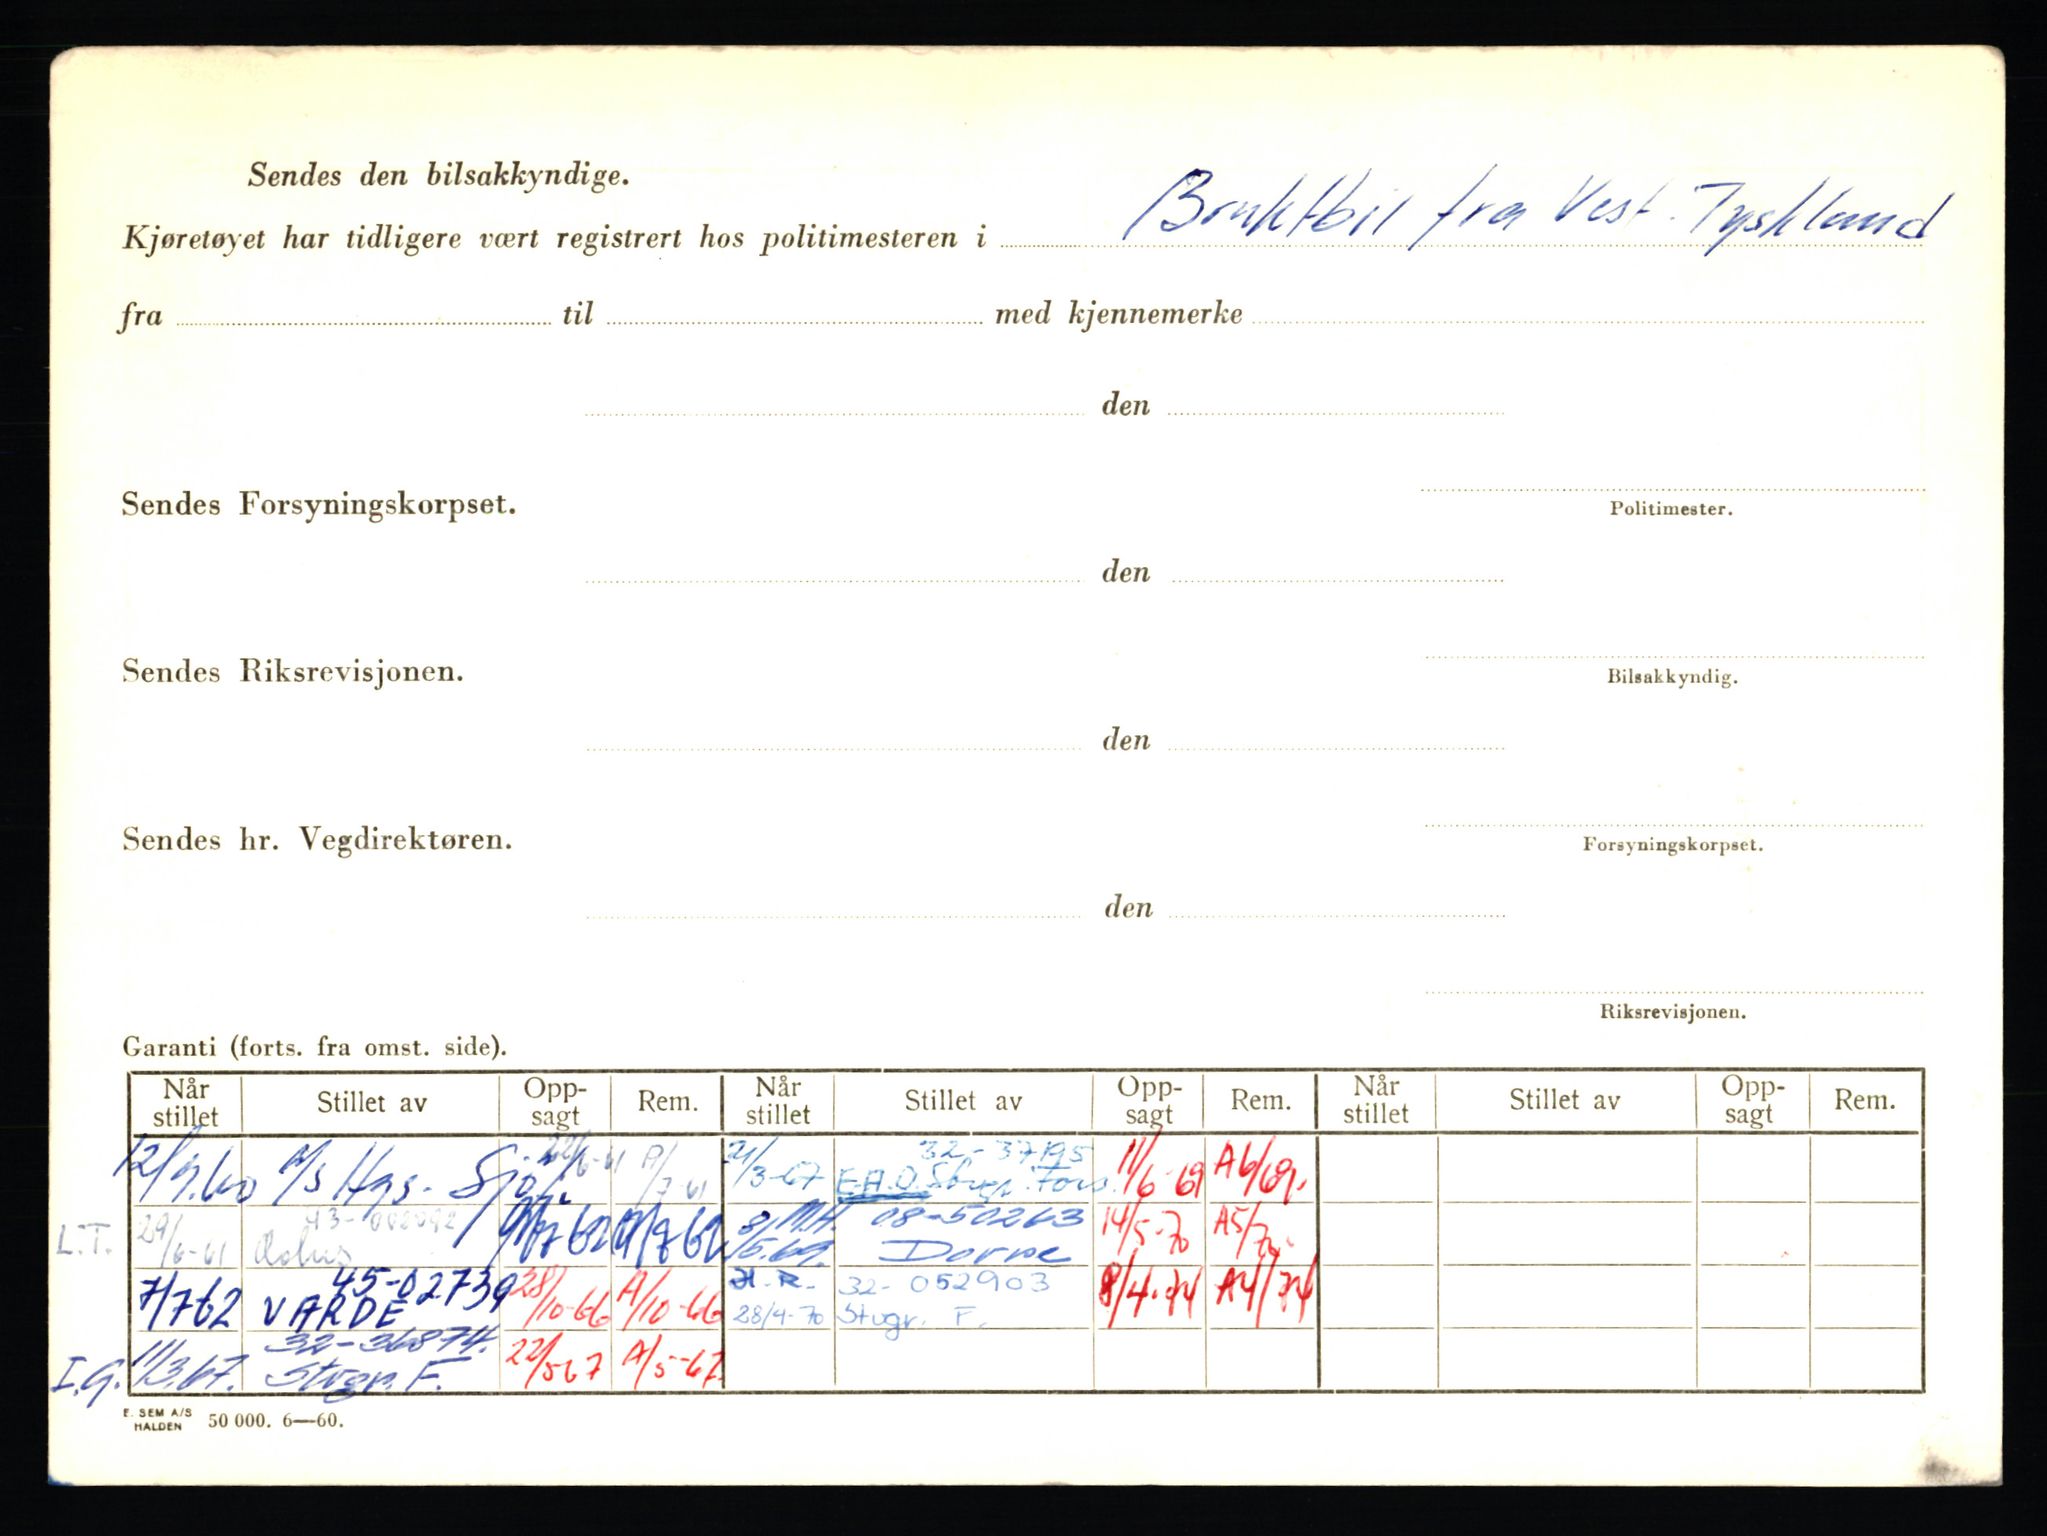 Sendes den bilsakkyndige.
Kjøretøyet har tidligere vært registrert hos politimesteren i Bruktbil fra Vest-Tyskland
fra til med kjennemerke
den
Sendes Forsyningskorpset.
Politimester.
den
Sendes Riksrevisjonen.
Bilsakkyndig.
den
Sendes hr. Vegdirektøren.
Forsyningskorpset.
den
Riksrevisjonen.
Garanti (forts. fra omst. side).
Når stillet Stillet av Opp-sagt Rem. Når stillet Stillet av Opp-sagt Rem. Når stillet Stillet av Opp-sagt Rem.
12/9.60 A/S Hgs. Sjø 22/6-61 A/7-61
L.T. 29/6-61
7/7 62 45-02739 VARDE 28/10-66 A/10-66
I.G. 11/3.67. 32-36874. Stvgr. F. 22/5 67 A/5-67
21/3-67 32-37195 E.A.O. Stvgr. Fors. 11/6-69 A6/69.
M.H. 08-50263 Dovre 14/5-70 A5/70
H.R. 28/4-70 32-052903 Stvgr. F. 8/4-74 A4/74
E. SEM A/S HALDEN 50 000. 6—60.